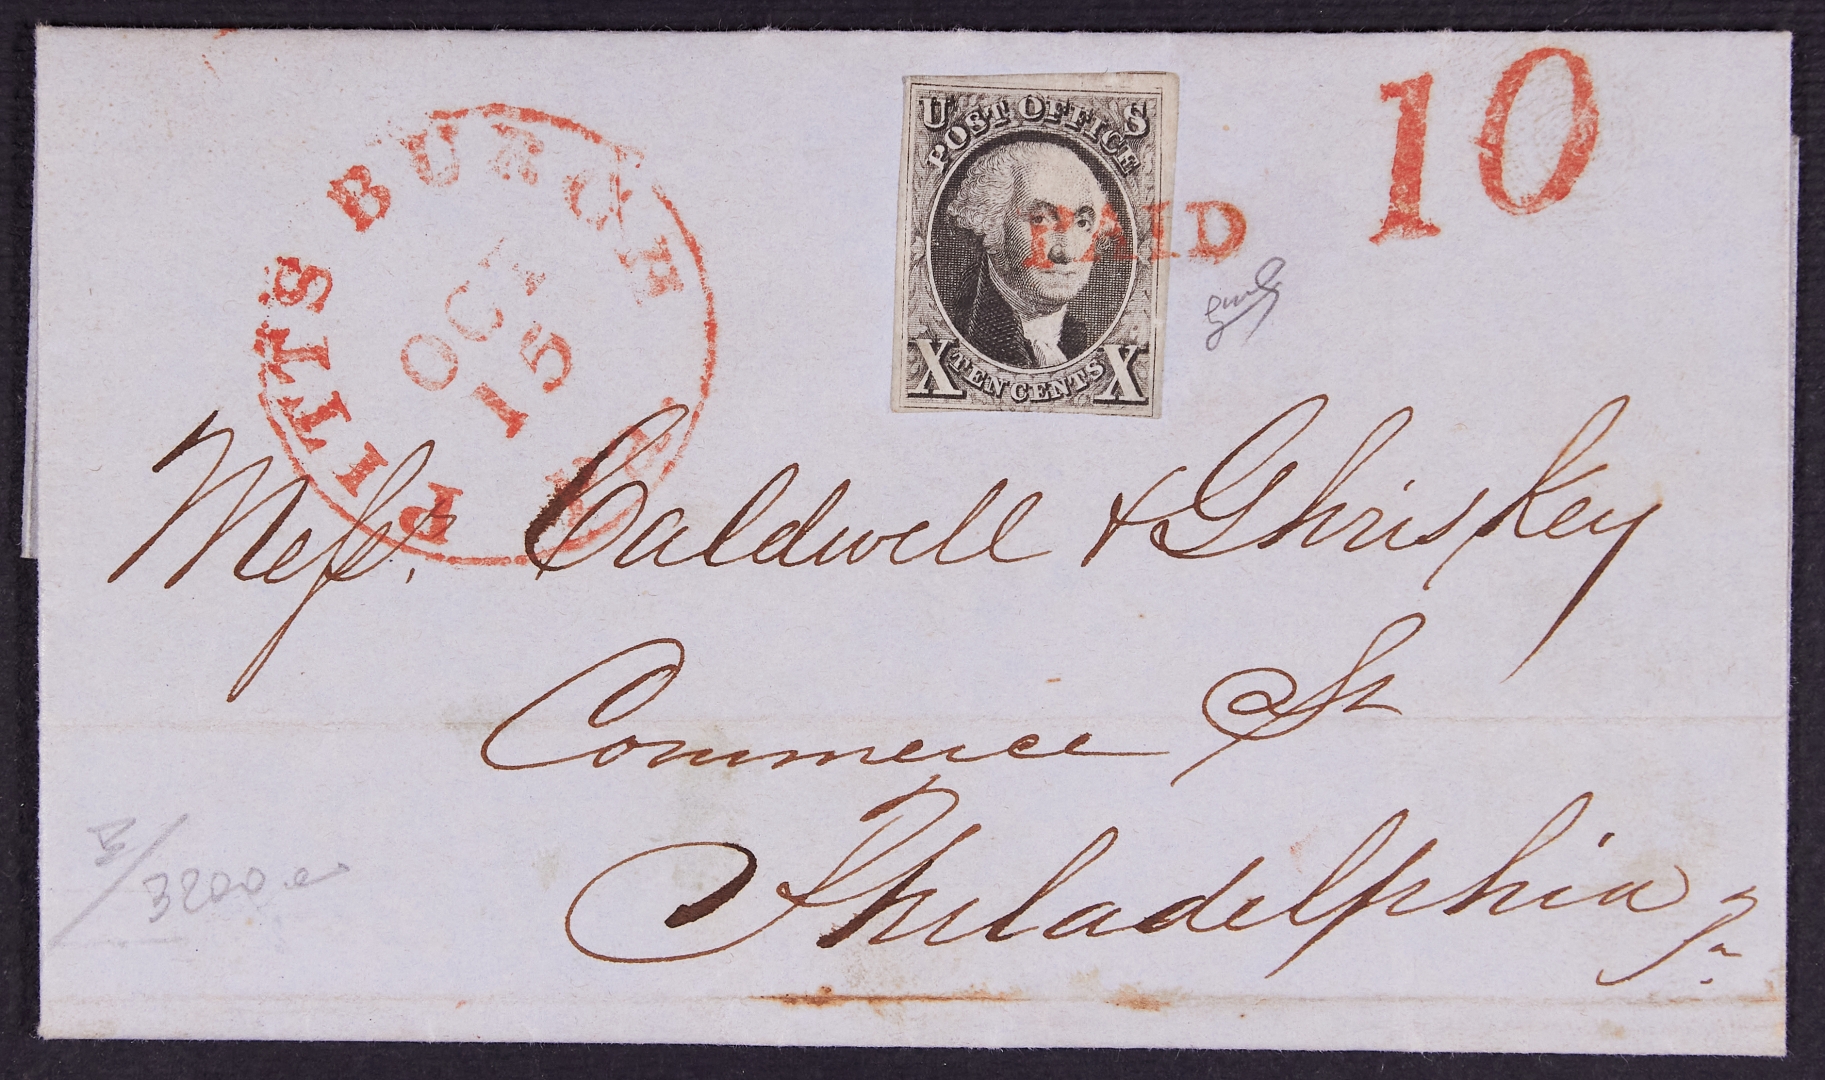 PITTSBURGH Pa.
OCT
15
U S
POST OFFICE
X TEN CENTS X
PAID
10
Mess. Caldwell & Ghriskey
Commerce St
Philadelphia
Pa.
3200